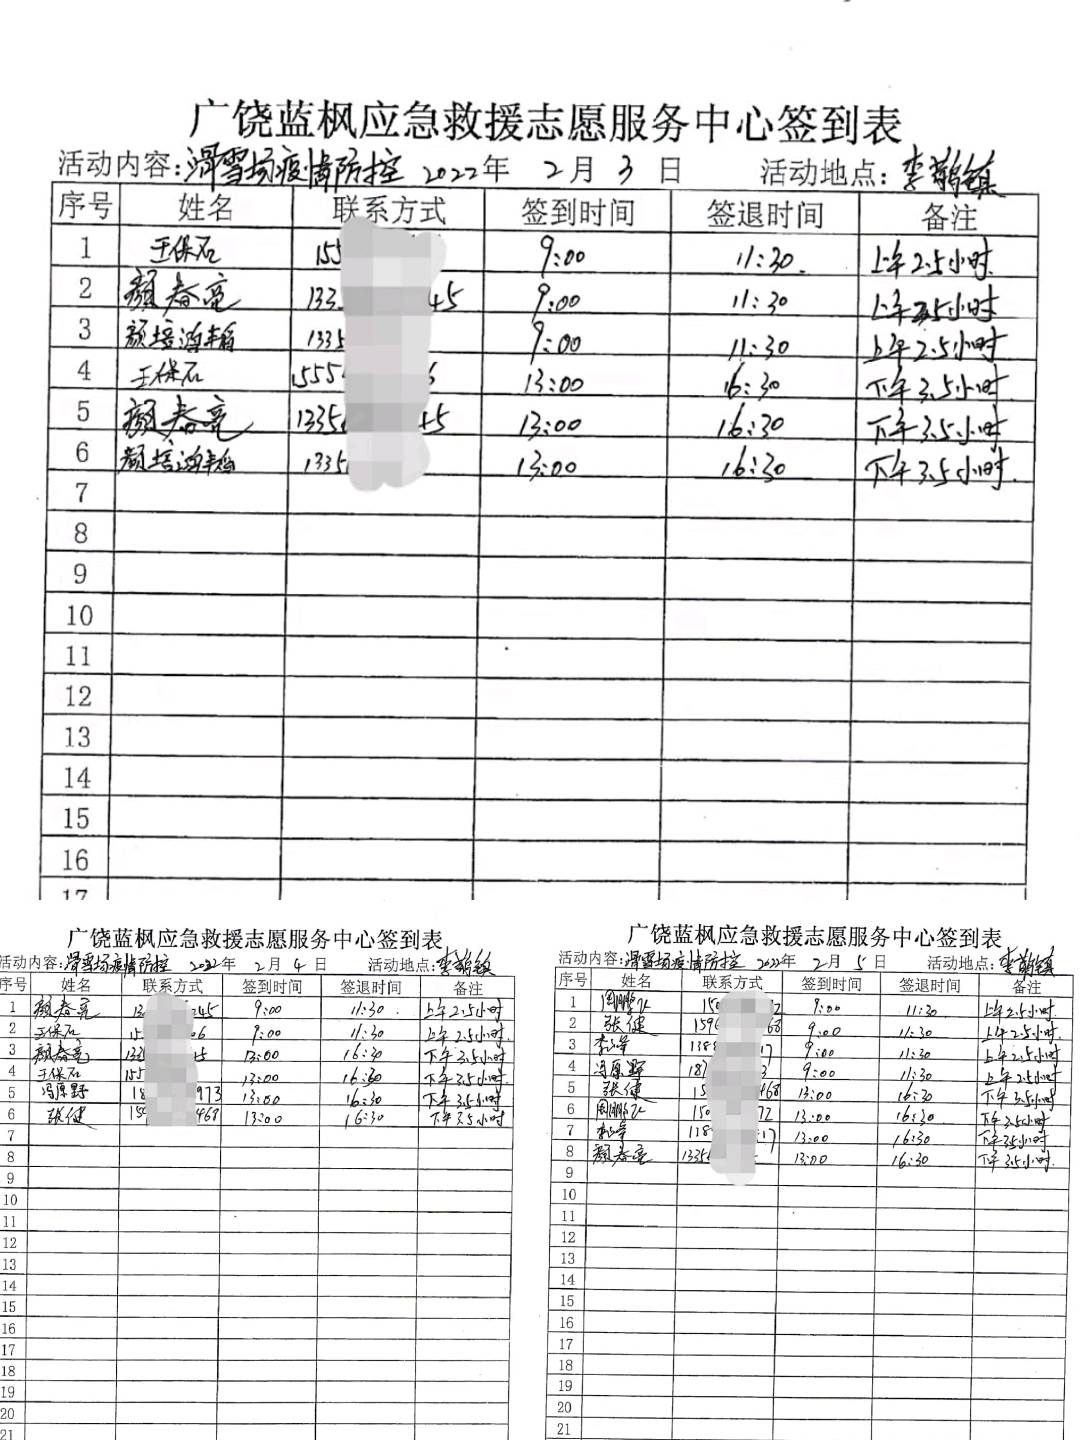 广饶蓝枫应急救援志愿服务中心签到表
活动内容:滑雪场疫情防控 2022年 2月 3 日 活动地点:李鹊镇
序号 姓名 联系方式 签到时间 签退时间 备注
1 王保石 155 9:00 11:30. 上午2.5小时.
2 颜春亮 133 45 9:00 11:30 上午2.5小时
3 颜培鸿 1335 9:00 11:30 上午2.5小时
4 王保石 1555 6 13:00 16:30 下午3.5小时
5 颜春亮 1335 45 13:00 16:30 下午3.5小时
6 颜培鸿 1335 13:00 16:30 下午3.5小时.
7
8
9
10
11
12
13
14
15
16
17
广饶蓝枫应急救援志愿服务中心签到表
活动内容:滑雪场疫情防控 2022年 2月 4 日 活动地点:李鹊镇
序号 姓名 联系方式 签到时间 签退时间 备注
1 颜春亮 13 245 9:00 11:30. 上午2.5小时
2 王保石 15 06 9:00 11:30 上午2.5小时
3 颜春亮 133 45 13:00 16:30 下午3.5小时
4 王保石 155 13:00 16:30 下午3.5小时
5 冯原野 18 973 13:00 16:30 下午3.5小时
6 张健 159 468 13:00 16:30 下午3.5小时
7
8
9
10
11
12
13
14
15
16
17
18
19
20
21
广饶蓝枫应急救援志愿服务中心签到表
活动内容:滑雪场疫情防控 2022年 2月 5 日 活动地点:李鹊镇
序号 姓名 联系方式 签到时间 签退时间 备注
1 周鹏飞 150 2 9:00 11:30 上午2.5小时.
2 张健 159 68 9:00 11:30 上午2.5小时
3 138 17 9:00 11:30 上午2.5小时
4 冯原野 187 3 9:00 11:30 上午2.5小时
5 张健 15 468 13:00 16:30 下午3.5小时
6 周鹏飞 150 72 13:00 16:30 下午3.5小时
7 17 13:00 16:30 下午3.5小时
8 颜春亮 1335 13:00 16:30 下午3.5小时
9
10
11
12
13
14
15
16
17
18
19
20
21